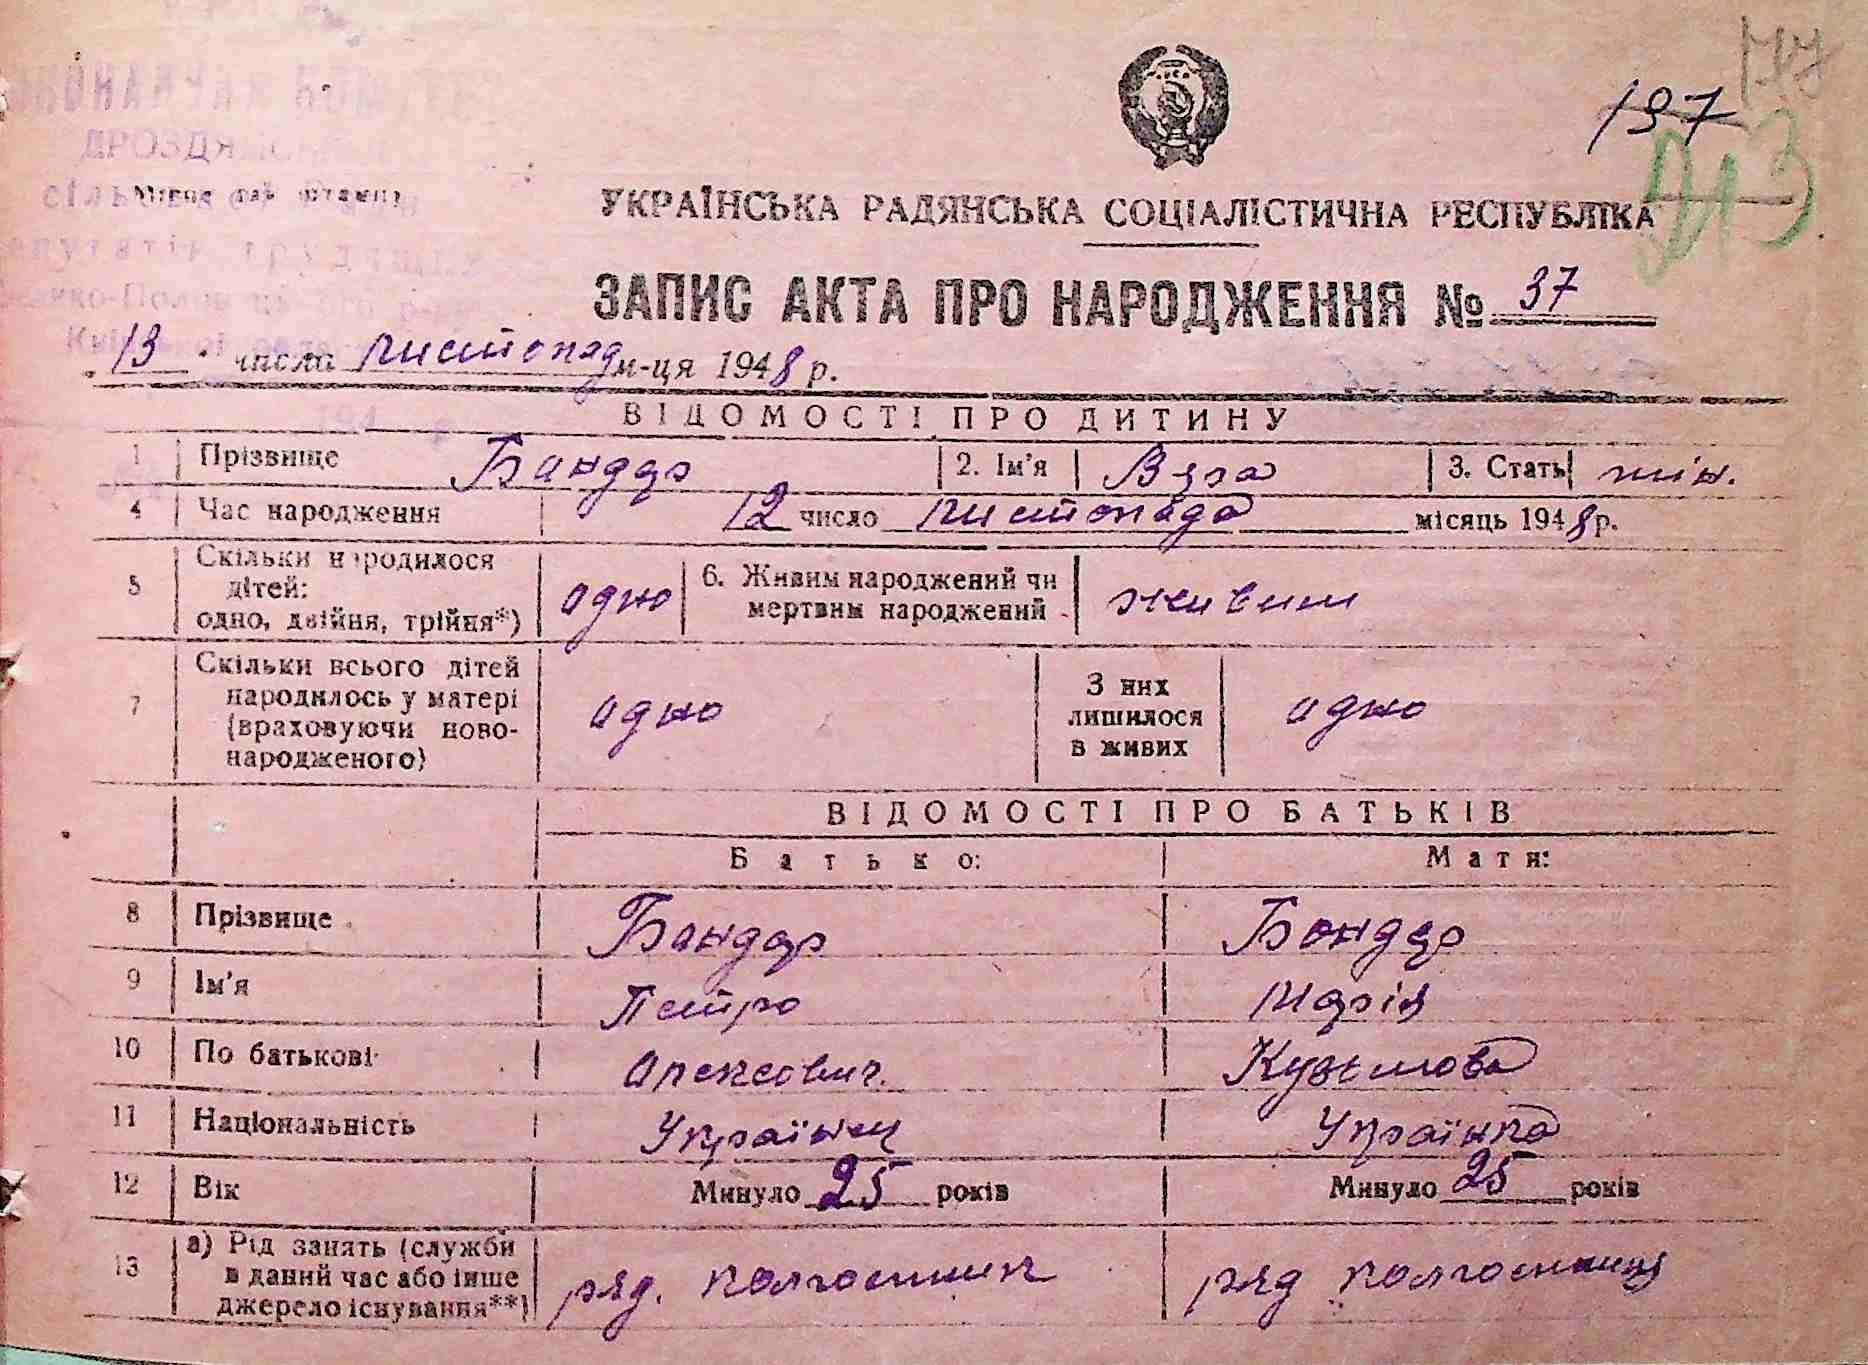 197
ДРОЗДЯ
Місце для штампу
УКРАЇНСЬКА РАДЯНСЬКА СОЦІАЛІСТИЧНА РЕСПУБЛІКА
ЗАПИС АКТА ПРО НАРОДЖЕННЯ № 37
13 числа листопад м-ця 1948 р.
ВІДОМОСТІ ПРО ДИТИНУ
1 Прізвище Бандар 2. Ім'я Вера 3. Стать жін.
4 Час народження 12 число листопада місяць 1948 р.
5 Скільки народилося
дітей:
одно, двійня, трійня*) одно 6. Живим народжений чи
мертвим народжений живим
7 Скільки всього дітей
народилось у матері
(враховуючи ново-
народженого) одно З них
лишилося
в живих одно
ВІДОМОСТІ ПРО БАТЬКІВ
Батько: Мати:
8 Прізвище Бандар Бондар
9 Ім'я Петро Марія
10 По батькові Алексович. Кузьмова
11 Національність Українец Українка
12 Вік Минуло 25 років Минуло 25 років
13 а) Рід занять (служби
в даний час або інше
джерело існування**) ряд. колгоспник ряд колгоспниця